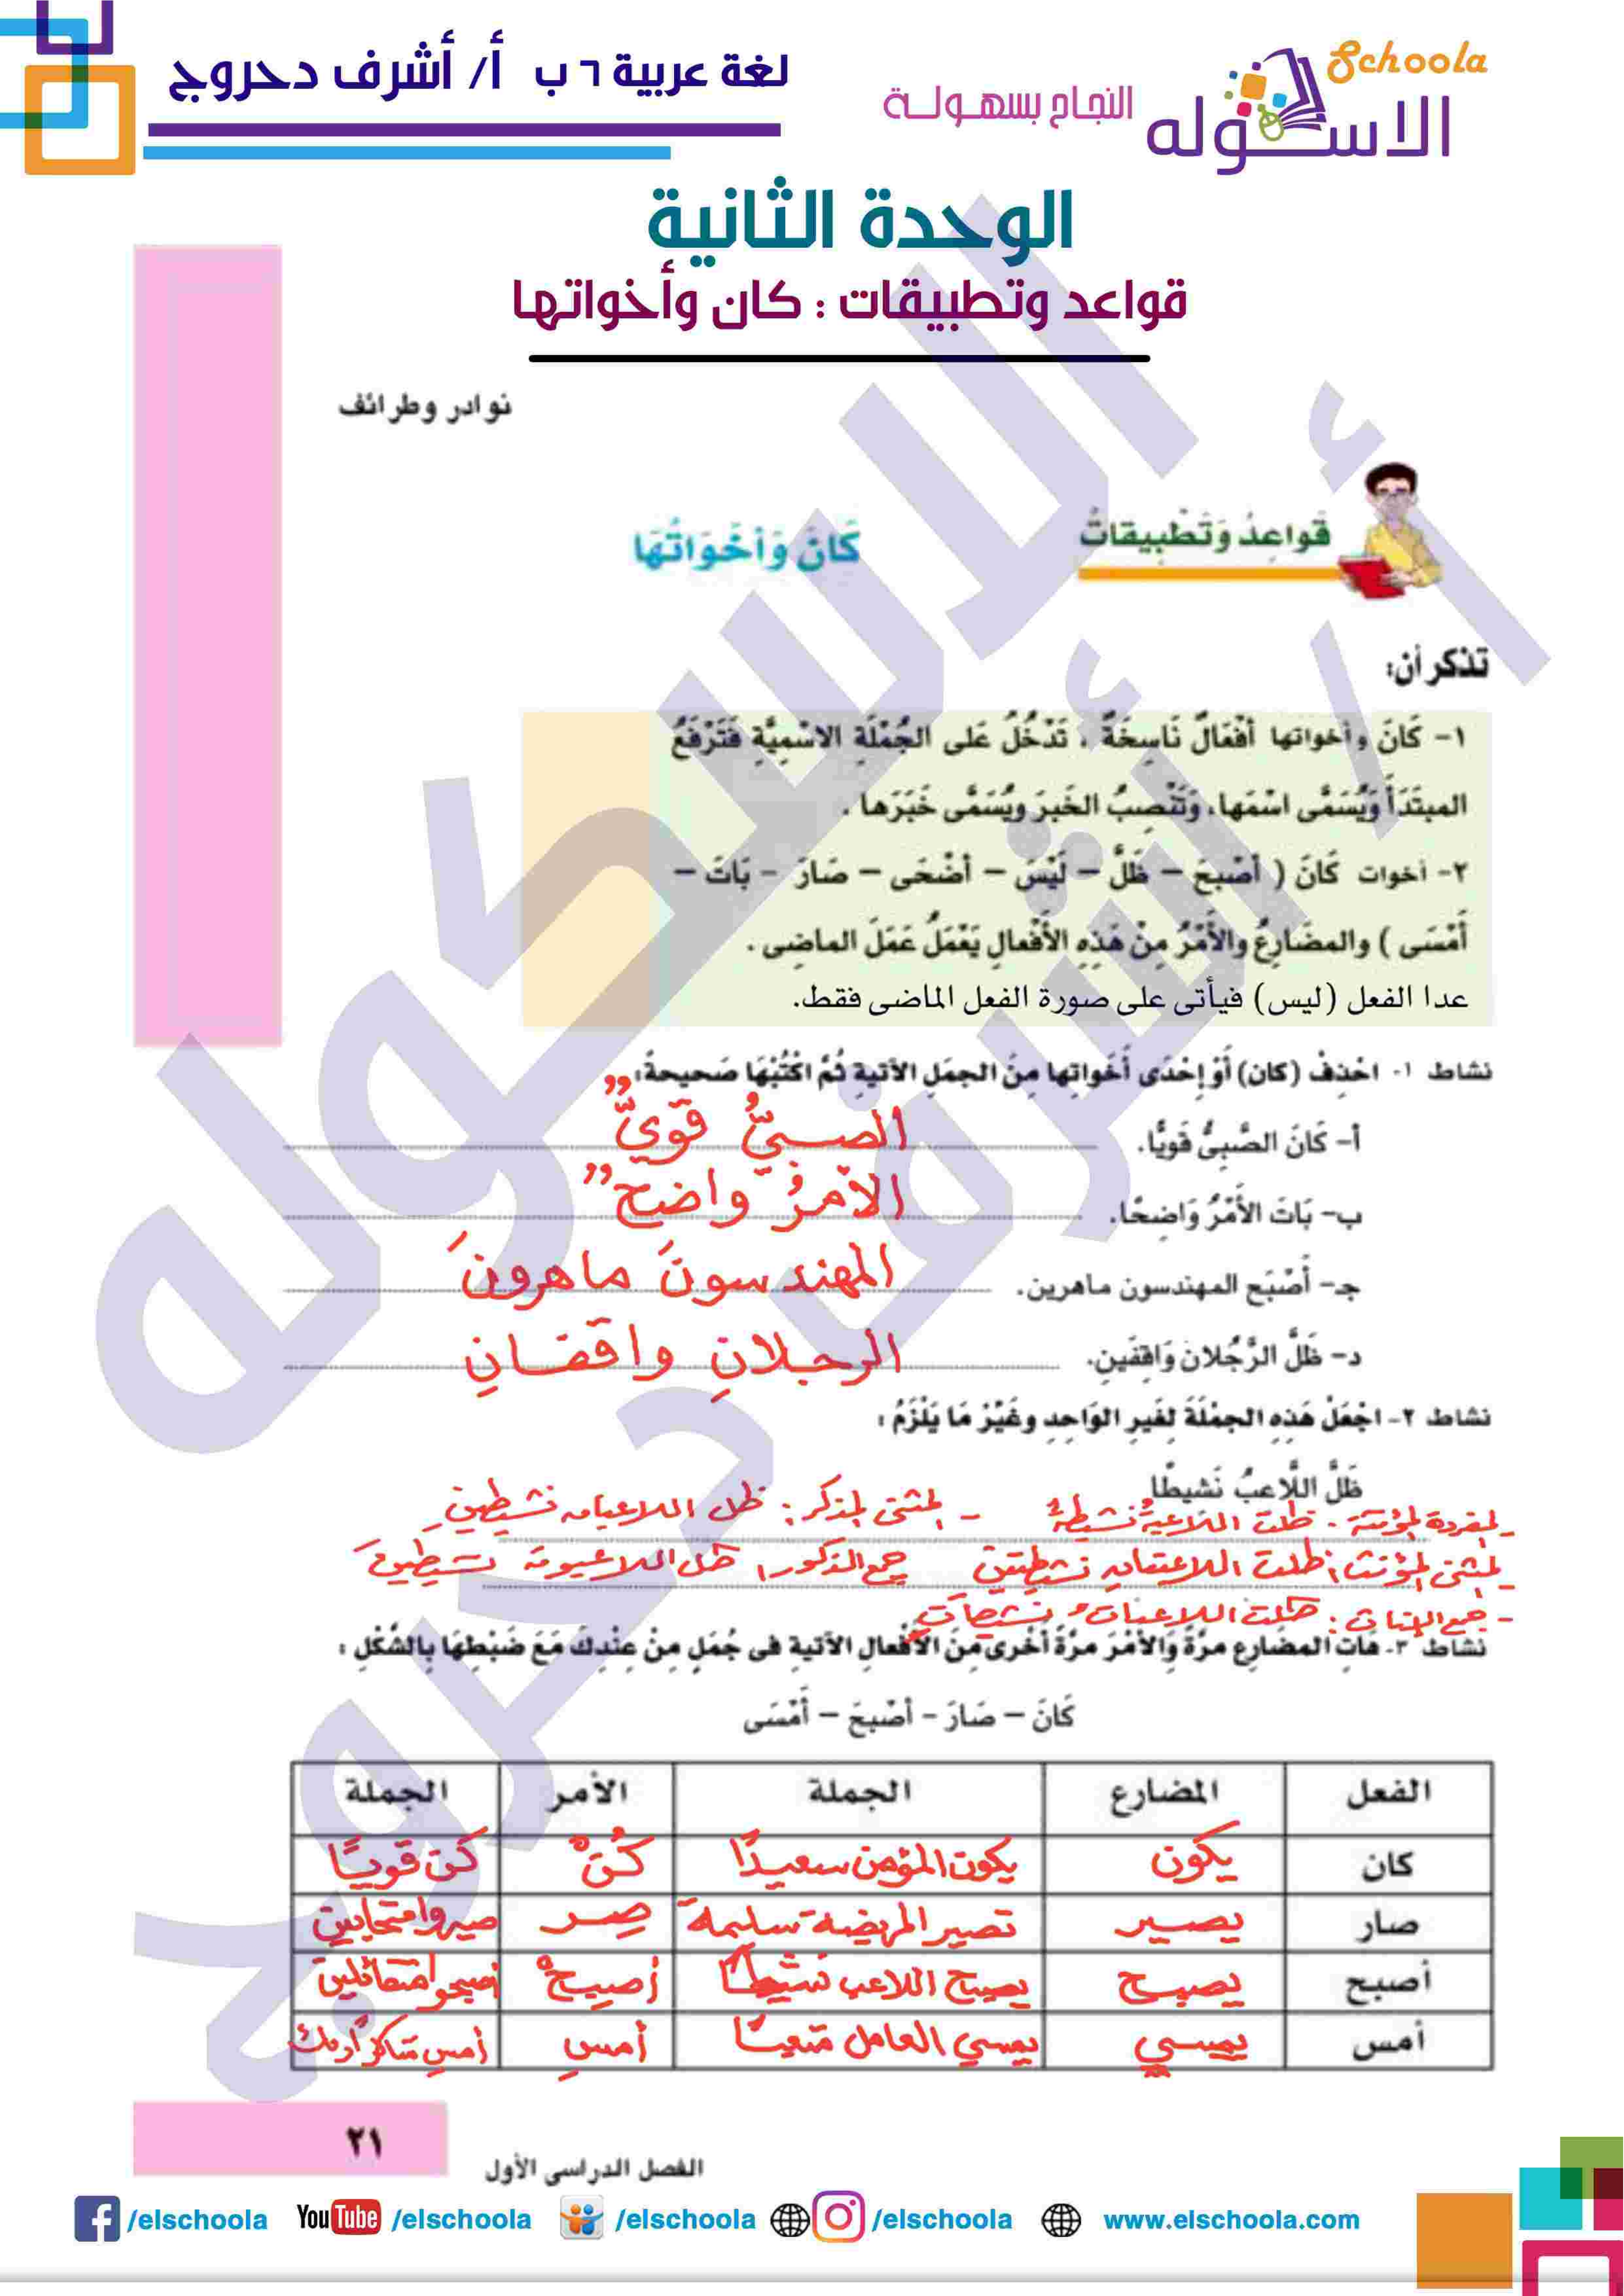 لغة عربية ٦ ب أ/ أشرف دحروج
Schoola
الاسكوله
النجاح بسهولة
الوحدة الثانية
قواعد وتطبيقات : كان وأخواتها
نوادر وطرائف
قَواعِدُ وَتَطْبِيقاتٌ
كَانَ وَأَخَوَاتُهَا
تذكر أن:
١- كَانَ وأخواتها أفْعَالٌ نَاسِخَةٌ ، تَدْخُلُ عَلى الجُمْلَةِ الاسْمِيَّةِ فَتَرْفَعُ
المبتَدَأَ وَيُسَمَّى اسْمَها، وَتَنْصِبُ الخَبرَ ويُسَمَّى خَبَرَها .
٢- أخوات كَانَ ( أصْبحَ – ظَلَّ – لَيْسَ – أضْحَى – صَارَ – بَاتَ –
أَمْسَى ) والمضَارِعُ والأَمْرُ مِنْ هَذِهِ الأَفْعالِ يَعْمَلُ عَمَلَ الماضِى .
عدا الفعل (ليس) فيأتى على صورة الفعل الماضى فقط.
نشاط ١- احْذِفْ (كان) أَوْ إحْدَى أَخَواتِها مِنَ الجمَلِ الآتيةِ ثُمَّ اكْتُبْهَا صَحيحةً:
أ- كَانَ الصَّبِىُّ قَويًّا. الصبيُّ قويٌّ
ب- بَاتَ الأَمْرُ وَاضِحًا. الأمرُ واضحٌ
جـ- أَصْبَح المهندسون ماهرين. المهندسونَ ماهرونَ
د- ظَلَّ الرَّجُلان وَاقِفَينِ. الرجلانِ واقفانِ
نشاط ٢- اجْعَلْ هَذِهِ الجمْلَةَ لِغَيرِ الوَاحِدِ وغَيِّرْ مَا يَلْزَمُ :
ظَلَّ اللَّاعبُ نَشيطًا
- المفردة المؤنثة : ظلت اللاعبةُ نشيطةً - المثنى المذكر : ظل اللاعبان نشيطينِ
- المثنى المؤنث : ظلت اللاعبتان نشيطتين جمع الذكور : ظل اللاعبون نشيطينَ
- جمع الإناث : ظلت اللاعباتُ نشيطاتٍ
نشاط ٣- هَاتِ المضَارِع مرَّةً وَالأَمْرَ مرَّةً أُخْرى مِنَ الأَفْعالِ الآتيةِ فى جُمَلٍ مِنْ عِنْدِكَ مَعَ ضَبْطِهَا بِالشَّكْلِ :
كَانَ – صَارَ – أصْبحَ – أَمْسَى
الفعل المضارع الجملة الأمر الجملة
كان يكون يكون المؤمن سعيدًا كُنْ كن قويًا
صار يصير تصير المريضة سليمةً صِر صيروا متحابين
أصبح يصبح يصبح اللاعب نشيطًا أصبِحْ أصبحوا متفائلين
أمس يمسي يمسي العامل متعبًا أمسِ أمسِ شاكرًا ربك
٢١
الفصل الدراسى الأول
/elschoola YouTube /elschoola /elschoola /elschoola www.elschoola.com